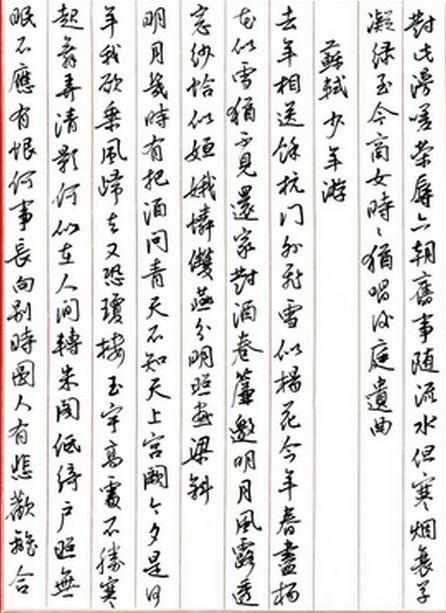 對此漫嗟榮辱六朝舊事隨流水但寒烟衰草
凝綠至今商女時〻猶唱後庭遺曲
蘇軾少年游
去年相送餘杭门外飛雪似楊花今年春盡楊
花似雪猶不見還家對酒卷簾邀明月風露透
窓纱恰似姮娥憐雙燕分明照畫梁斜
明月幾時有把酒問青天不知天上宮闕今夕是何
年我欲乘風歸去又恐瓊樓玉宇高處不勝寒
起舞弄清影何似在人间轉朱閣低綺户照無
眠不應有恨何事長向别時圓人有悲歡離合